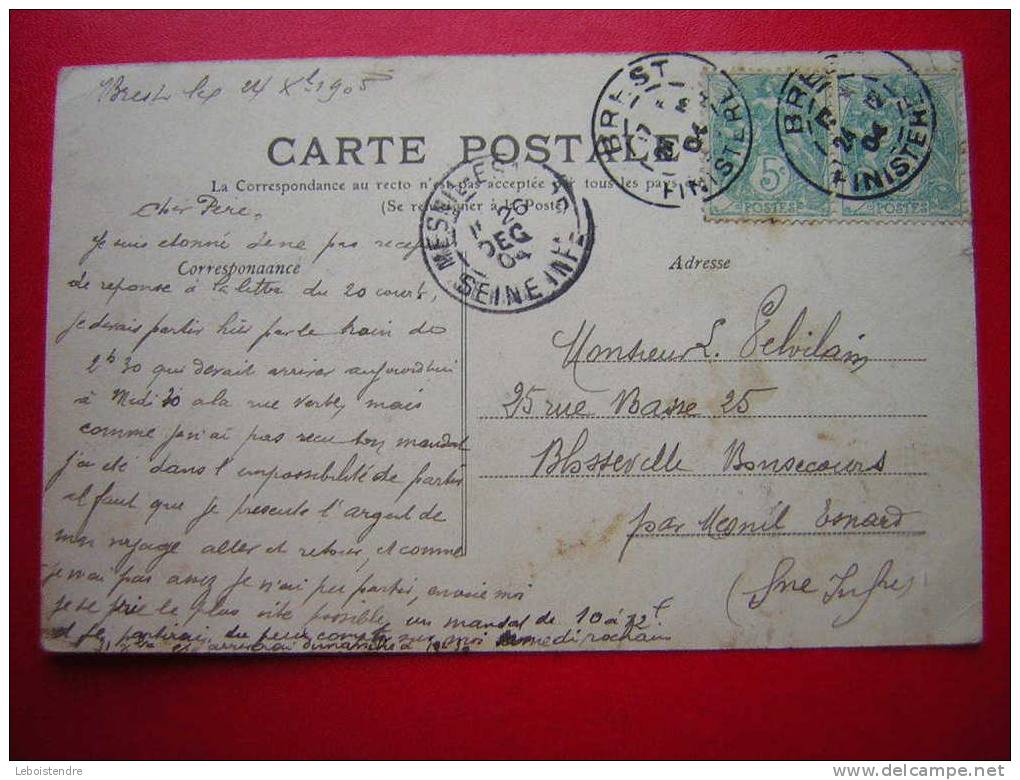 Brest le 24 Xbre 1905
CARTE POSTALE
La Correspondance au recto n'est pas acceptée par tous les pays
(Se renseigner à la Poste)
BREST
24
04
FINISTERE
BREST
24 12
04
FINISTERE
5c
POSTES
POSTES
MESNIL-ESNARD
26
DEC
04
SEINE INFRE
Correspondance
Adresse
Cher Père,
Je suis étonné de ne pas recep
de réponse à la lettre du 20 court,
je devais partir hier par le train de
2h 30 qui devait arriver aujourd'hui
à Midi 30 a la rue verte, mais
comme je n'ai pas recu ton mandat
j'ai été dans l'impossibilité de partir
il faut que je présente l'argent de
mon voyage aller et retour, et comme
je n'ai pas assez je n'ai pu partir, envoie moi
je te prie le plus vite possible un mandat de 10 à 12f
et je partirai tu peux compter sur moi samedi prochain
31 et arriverai dimanche à
Monsieur L. Pelvilain
25 rue Basse 25
Blosseville Bonsecours
par Mesnil Esnard
(Sne Infre)
Leboistendre
delcampe.net